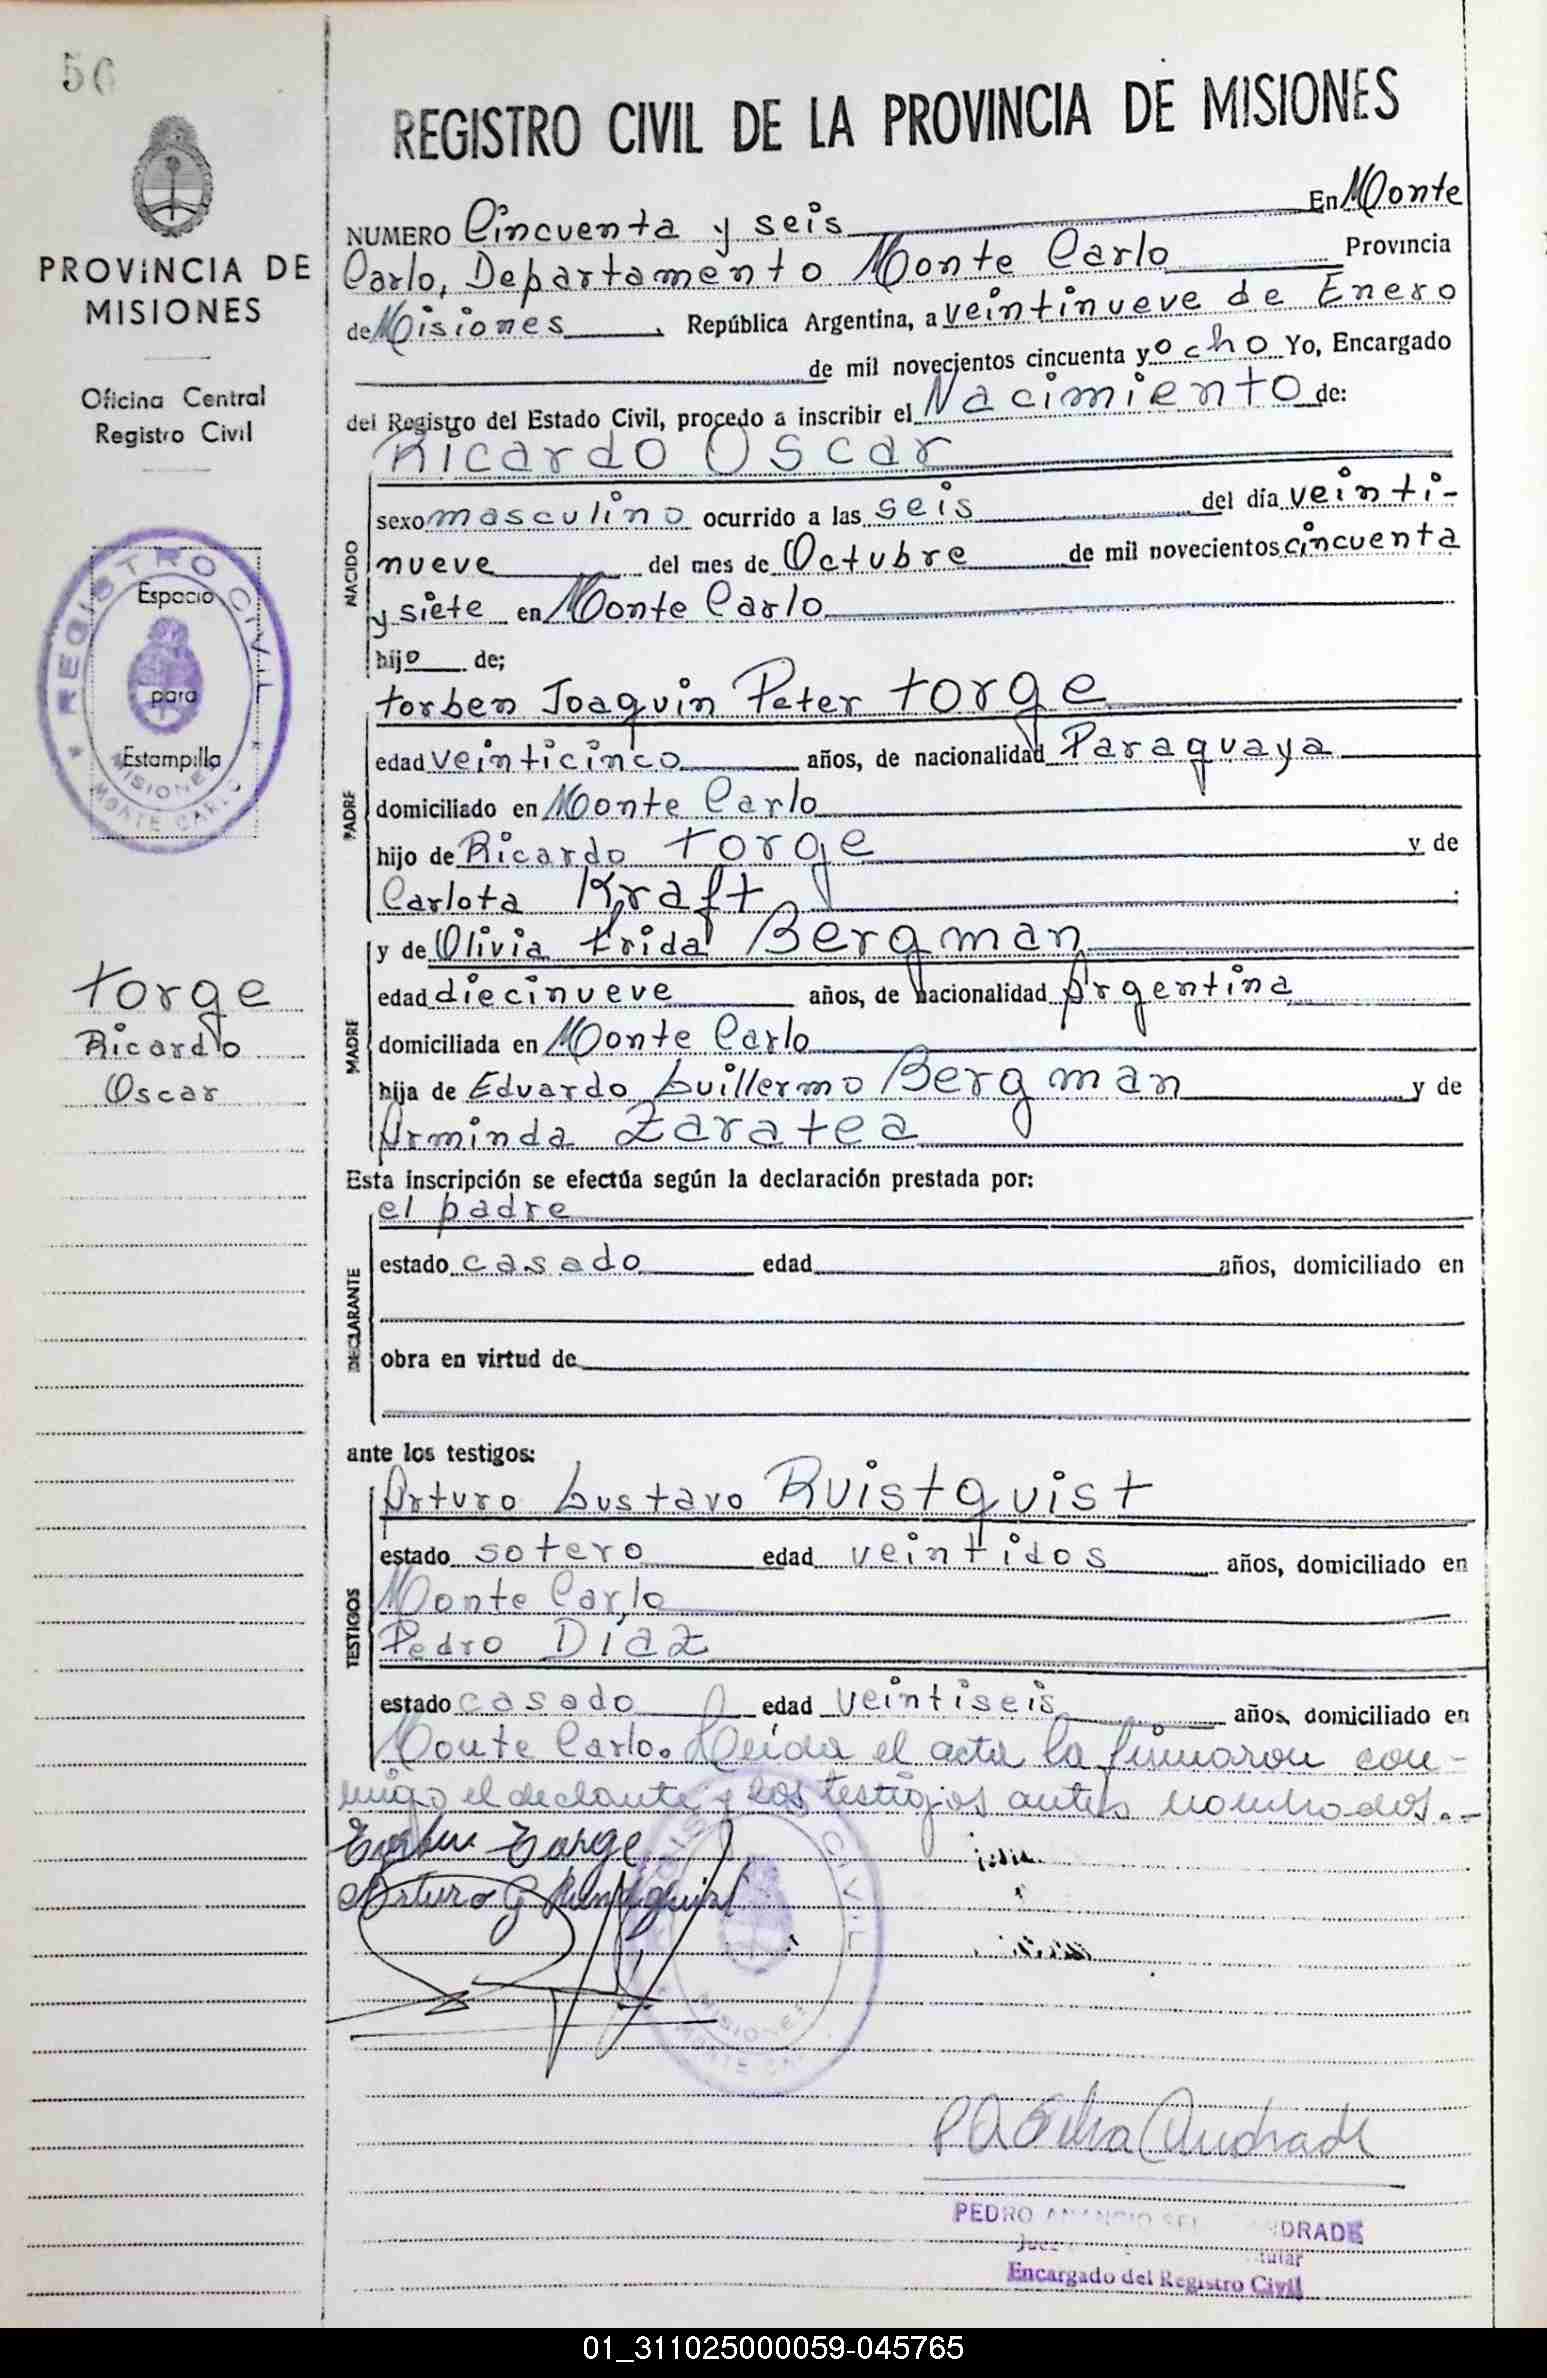 56
REGISTRO CIVIL DE LA PROVINCIA DE MISIONES
PROVINCIA DE
MISIONES
Oficina Central
Registro Civil
REGISTRO CIVIL
Espacio
para
Estampilla
MISIONES
MONTE CARLO
Torge
Ricardo
Oscar
NUMERO Cincuenta y seis En Monte
Carlo, Departamento Monte Carlo Provincia
de Misiones, República Argentina, a veintinueve de Enero
de mil novecientos cincuenta y ocho Yo, Encargado
del Registro del Estado Civil, procedo a inscribir el Nacimiento de:
Ricardo Oscar
NACIDO
sexo masculino ocurrido a las seis del día veinti-
nueve del mes de Octubre de mil novecientos cincuenta
y siete en Monte Carlo
hijo de;
torben Joaquin Peter torge
PADRE
edad veinticinco años, de nacionalidad Paraguaya
domiciliado en Monte Carlo
hijo de Ricardo torge y de
Carlota Kraft
MADRE
y de Olivia frida Bergman
edad diecinueve años, de nacionalidad Argentina
domiciliada en Monte Carlo
hija de Eduardo Guillermo Bergman y de
Arminda Zaratea
Esta inscripción se efectúa según la declaración prestada por:
DECLARANTE
el padre
estado casado edad años, domiciliado en
obra en virtud de
ante los testigos:
TESTIGOS
Arturo Gustavo Ruistquist
estado sotero edad veintidos años, domiciliado en
Monte Carlo
Pedro Díaz
estado casado edad veintiseis años, domiciliado en
Monte Carlo. Leída el acta la firmaron con-
migo el declante y los testigos antes nombrados.-
Torben Torge
Arturo G
REGISTRO CIVIL
MISIONES
MONTE CARLO
Andrade
PEDRO ANDRADE
Encargado del Registro Civil
01_311025000059-045765